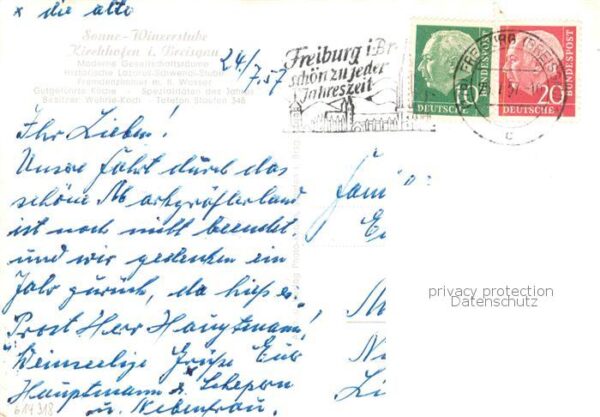 x die alte
Sonne-Winzerstube
Kirchhofen i. Breisgau
Moderne Gesellschaftsräume
Historische Lazarus-Schwendi-Stube
Fremdenzimmer m. fl. Wasser
Gutgeführte Küche - Spezialitäten des Jahres
Besitzer Telefon Staufen 346
24/7.57
Freiburg i. Br
schön zu jeder
Jahreszeit
10
DEUTSCHE
BUNDESPOST
FREIBURG (BREISG
20
DEUTSCHE
BUNDESPOST
c
Ihr Lieben!
Unsre Fahrt durch das
schöne Markgräflerland
ist noch nicht beendet
und wir gedenken ein
Jahr zurück, da hieß es:
Prost Herr Hauptmann!
Weinseelige Grüße Eure
Hauptmann x
u. Nebenfrau.
614 318
Fami
M
N
Li
privacy protection
Datenschutz